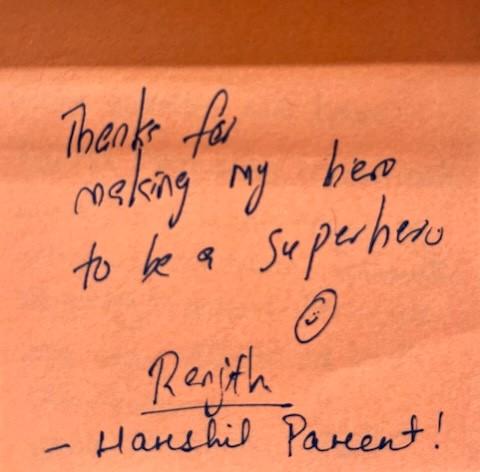 Thanks for
making my hero
to be a superhero
Renjith
- Harshil Parent!